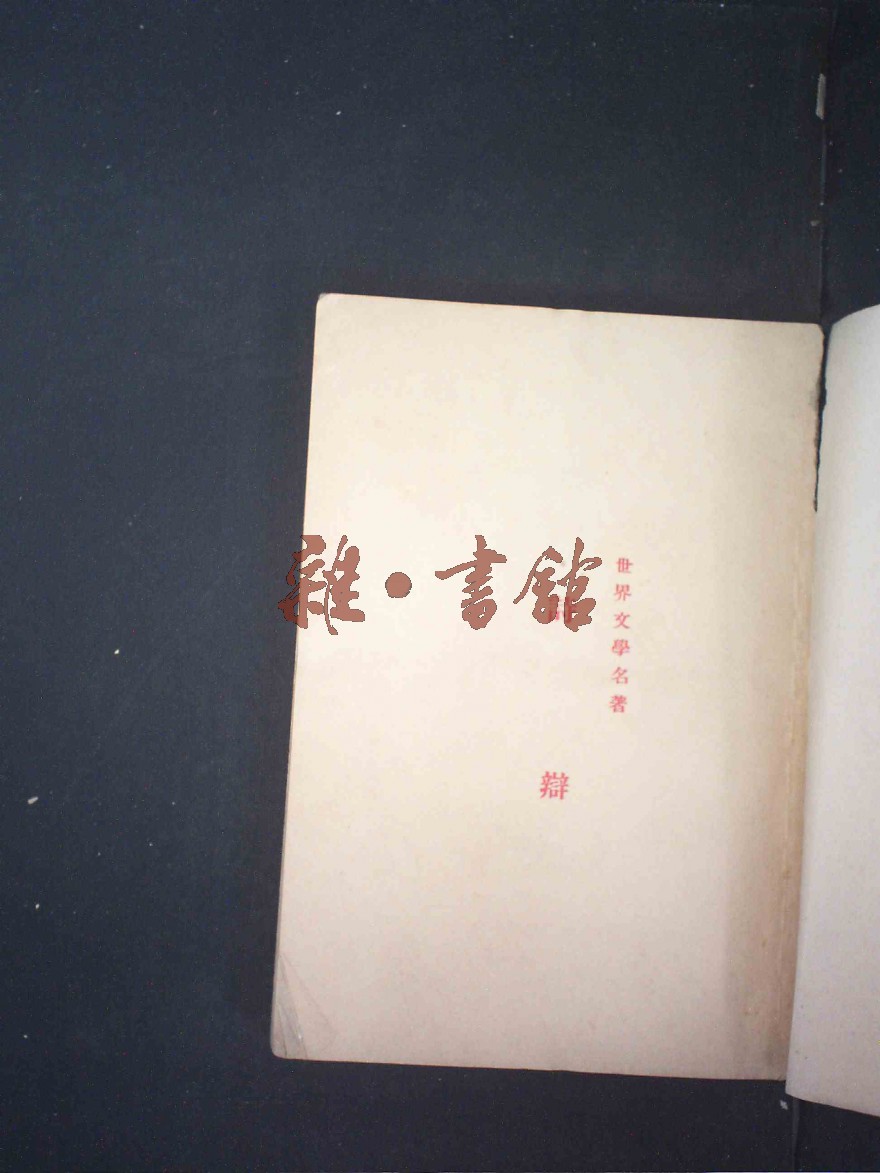 世界文學名著
辯
雜·書館